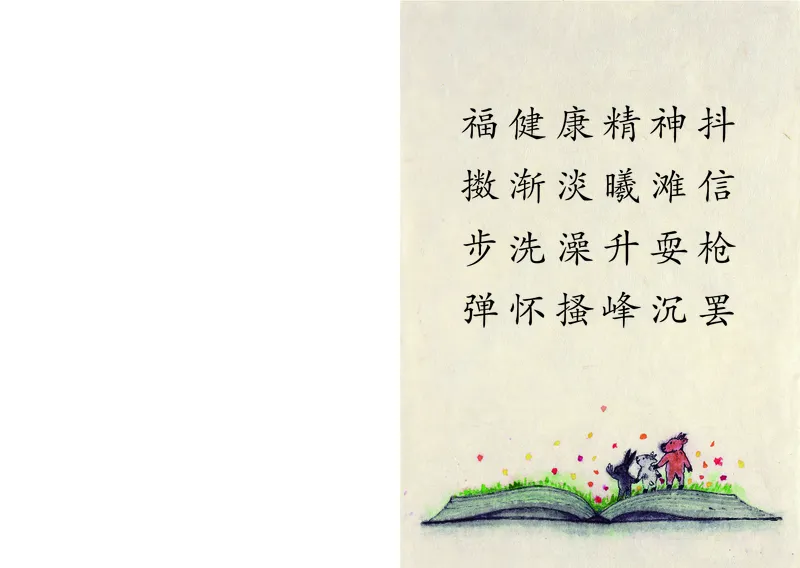 福健康精神抖
擞渐淡曦滩信
步洗澡升耍枪
弹怀搔峰沉罢